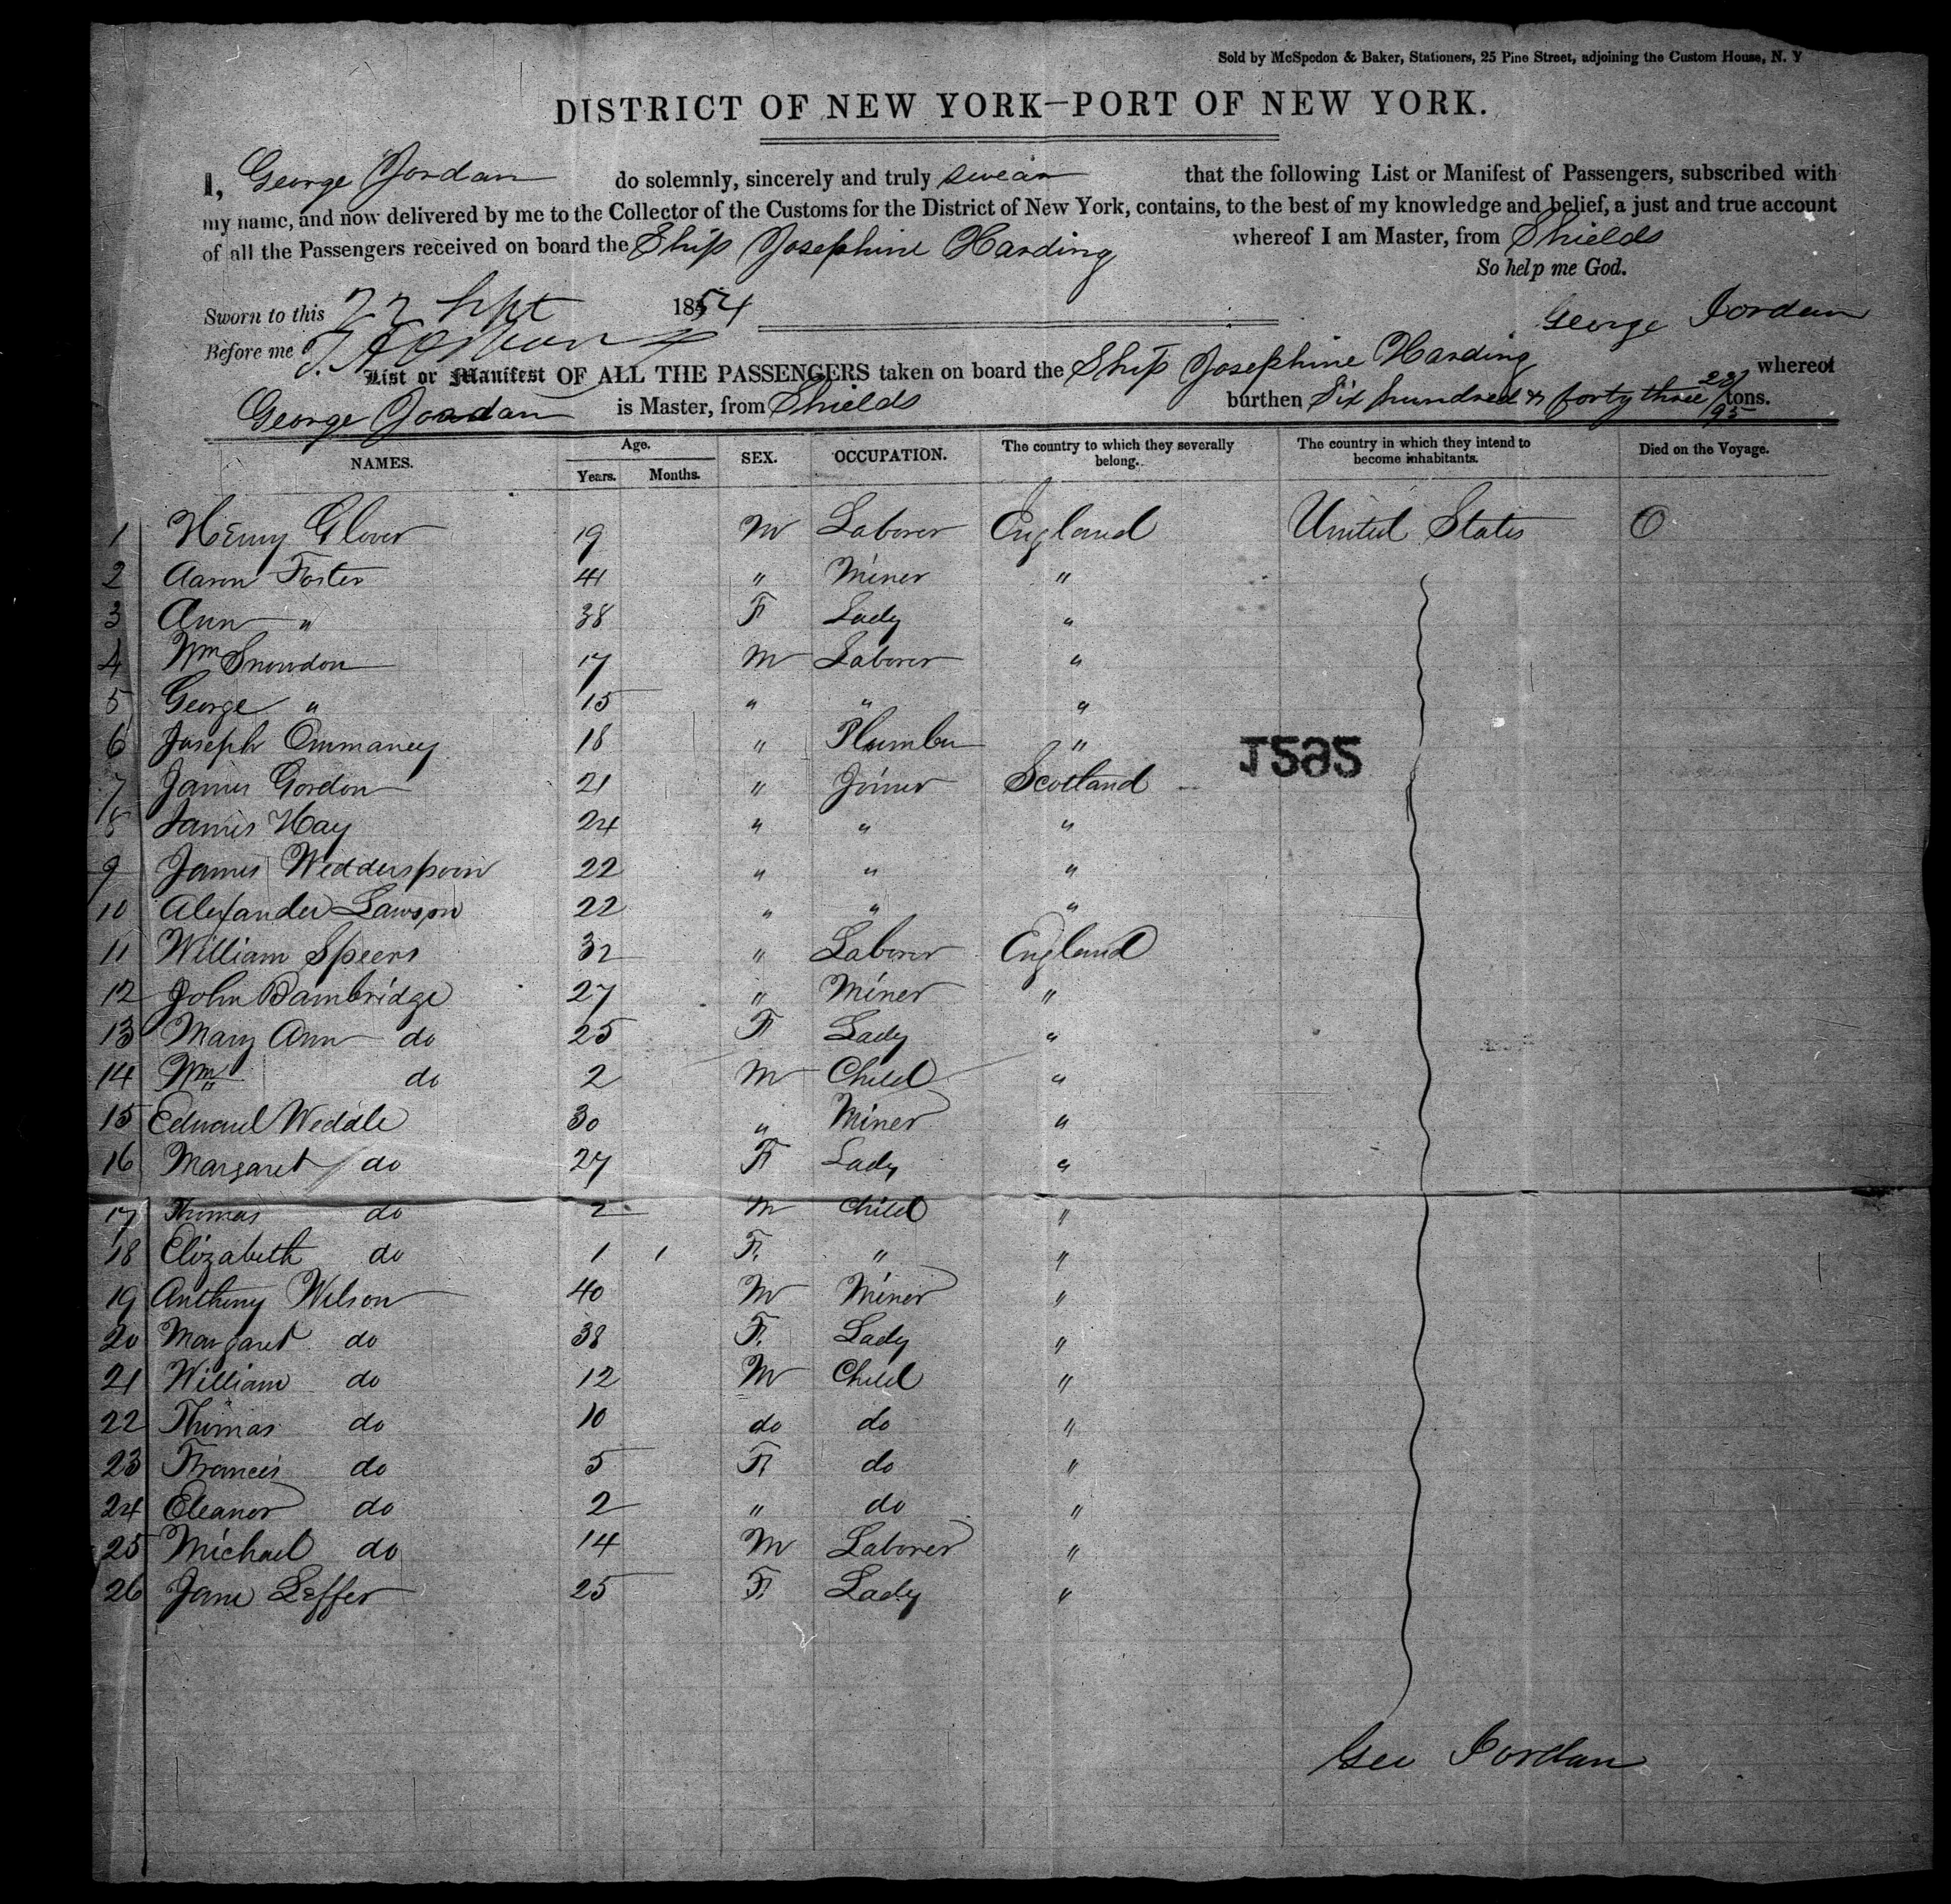 Sold by McSpedon & Baker, Stationers, 25 Pine Street, adjoining the Custom House, N. Y
DISTRICT OF NEW YORK—PORT OF NEW YORK.
I, George Jordan do solemnly, sincerely and truly swear that the following List or Manifest of Passengers, subscribed with
my name, and now delivered by me to the Collector of the Customs for the District of New York, contains, to the best of my knowledge and belief, a just and true account
of all the Passengers received on board the Ship Josephine Harding whereof I am Master, from Shields
So help me God.
Sworn to this 22 Sept 1854
George Jordan
Before me
List or Manifest OF ALL THE PASSENGERS taken on board the Ship Josephine Harding whereof
George Jordan is Master, from Shields burthen Six hundred & forty three 28/95 tons.
NAMES. Age. Years. Months. SEX. OCCUPATION. The country to which they severally belong. The country in which they intend to become inhabitants. Died on the Voyage.
1 Henry Glover 19 M Laborer England United States O
2 Aaron Foster 41 " Miner "
3 Ann " 38 F Lady "
4 Wm Snowdon 17 M Laborer "
5 George " 15 " " "
6 Joseph Ommaney 18 " Plumber "
J525
7 James Gordon 21 " Joiner Scotland
8 James Hay 24 " " "
9 James Wedderspoon 22 " " "
10 Alexander Lawson 22 " " "
11 William Speers 32 " Laborer England
12 John Bambridge 27 " Miner "
13 Mary Ann do 25 F Lady "
14 Wm do 2 M Child "
15 Edward Weddle 30 " Miner "
16 Margaret do 27 F Lady "
17 Thomas do 2 M Child "
18 Elizabeth do 1 1 F. " "
19 Anthony Wilson 40 M Miner "
20 Margaret do 38 F. Lady "
21 William do 12 M Child "
22 Thomas do 10 do do "
23 Francis do 5 F do "
24 Eleanor do 2 " do "
25 Michael do 14 M Laborer "
26 Jane Leffer 25 F Lady "
Geo Jordan